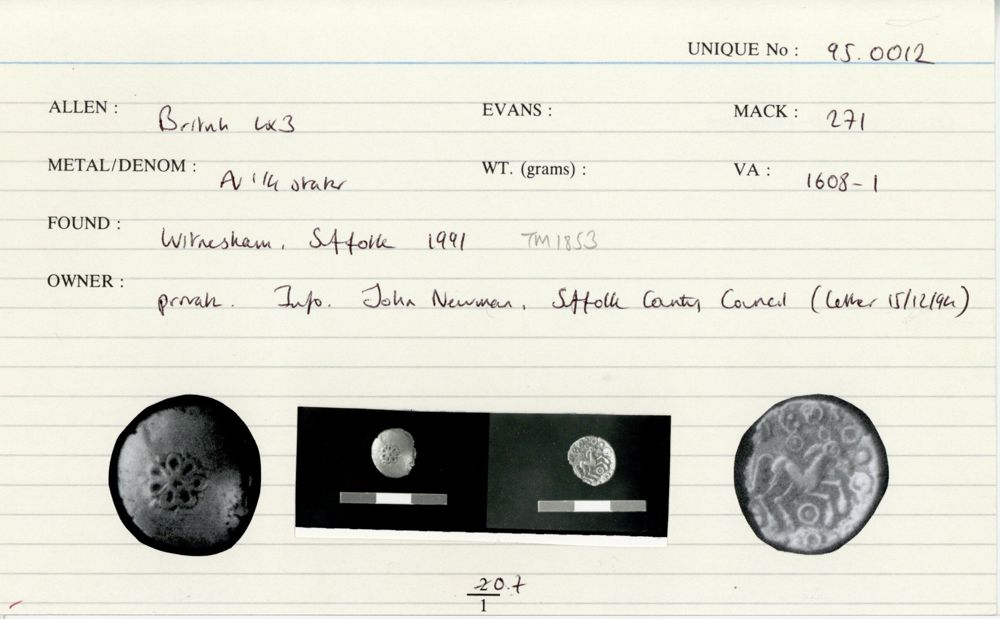 UNIQUE No : 95.0012
ALLEN : British LX3 EVANS : MACK : 271
METAL/DENOM : AV 1/4 stater WT. (grams) : VA : 1608-1
FOUND : Witnesham, Suffolk 1991 TM1853
OWNER : private. Info. John Newman, Suffolk County Council (letter 15/12/94)
20.7
1